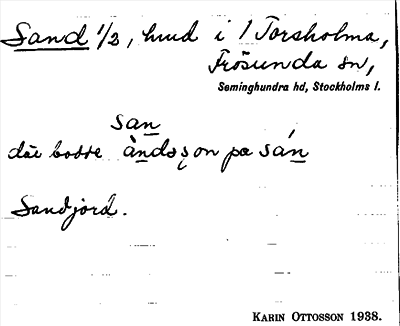 Sand 1/2, hmd i 1 Torsholma,
Frösunda sn,
Seminghundra hd, Stockholms l.
san
där bodde àndsson pœ sán
Sandjord.
KARIN OTTOSSON 1938.